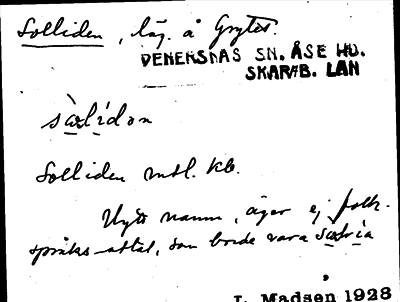 Solliden, läg. å Grytet.
DENERSNAS SN. ÅSE HD.
SKARAB. LÄN
sòlídən
Solliden mtl. kb.
Nytt namn, äger ej folk-
språks-uttal, som borde vara
L. Madsen 1928